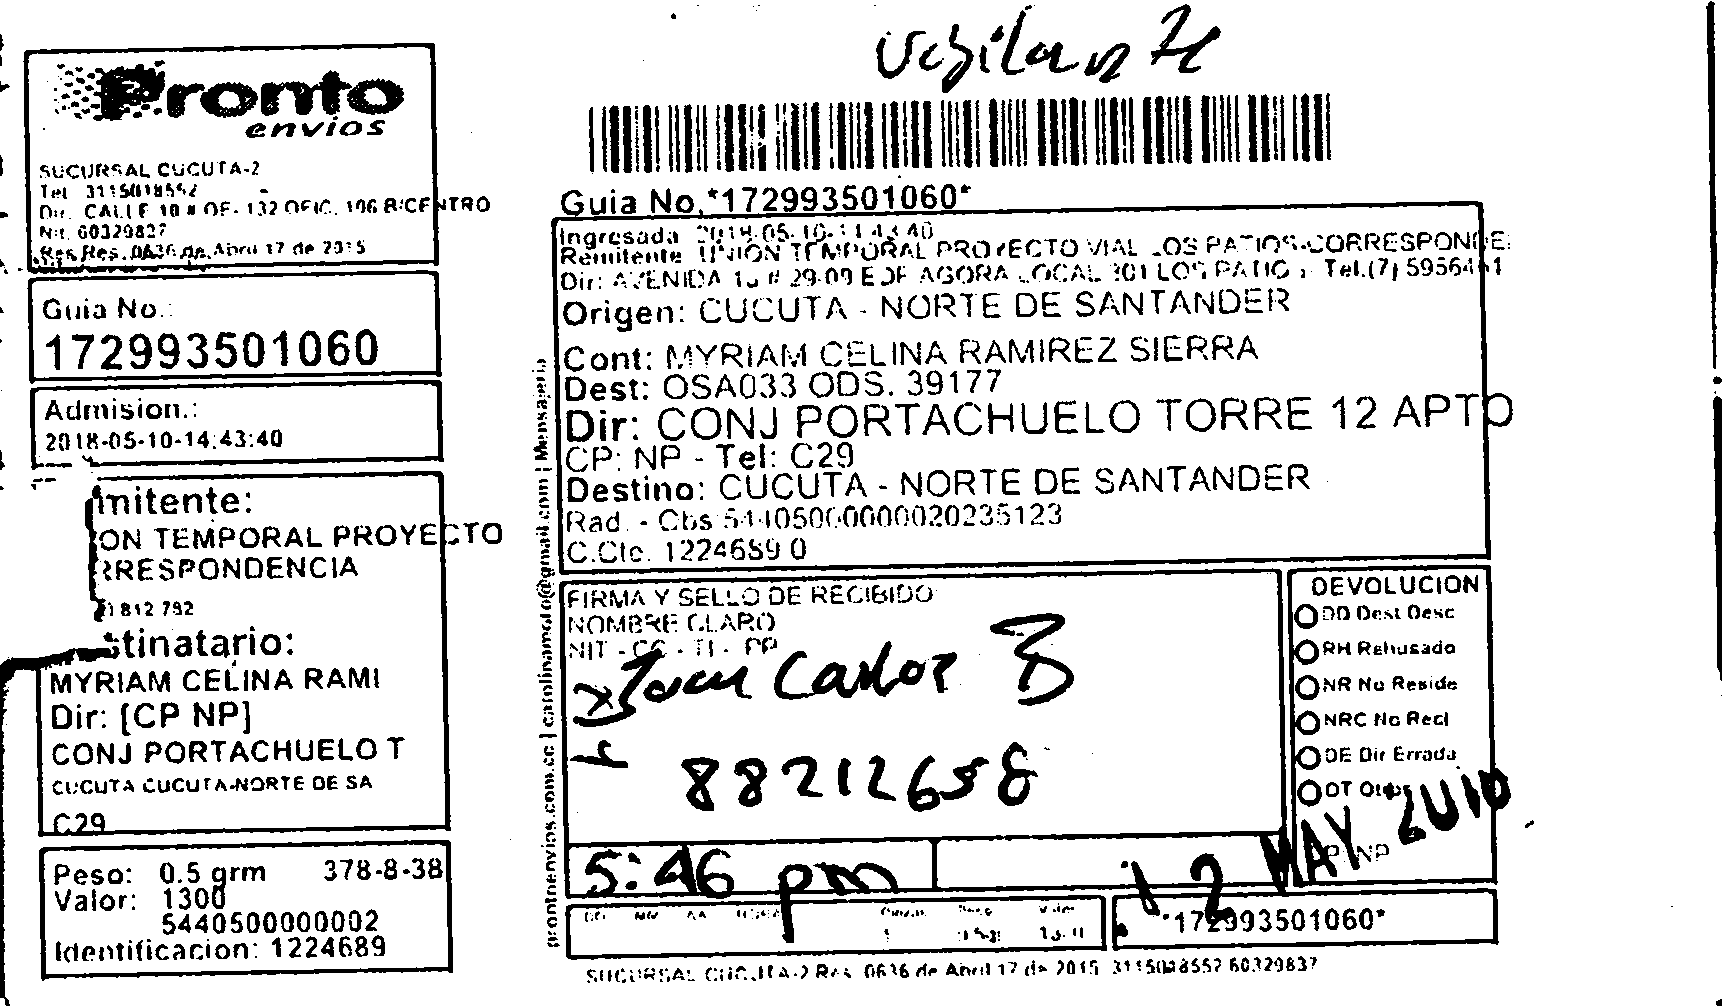 Vigilante
Pronto
envios
SUCURSAL CUCUTA-2
Tel. 3115018552
Dir. CALLE 10 # OE- 132 OFIC. 106 B/CENTRO
Nit. 60329837
Res.Res. 0636 de Abril 17 de 2015
Guia No.:
172993501060
Admision.:
2018-05-10-14:43:40
mitente:
ON TEMPORAL PROYECTO
RRESPONDENCIA
812 792
stinatario:
MYRIAM CELINA RAMI
Dir: [CP NP]
CONJ PORTACHUELO T
CUCUTA CUCUTA-NORTE DE SA
C29
Peso: 0.5 grm 378-8-38
Valor: 1300
5440500000002
Identificacion: 1224689
Guia No.*172993501060*
Ingresada 2018-05-10-14:43:40
Remitente UNION TEMPORAL PROYECTO VIAL LOS PATIOS-CORRESPONDE
Dir: AVENIDA 29-09 EDF AGORA LOCAL 301 LOS PATIO Tel.(7)
Origen: CUCUTA - NORTE DE SANTANDER
Cont: MYRIAM CELINA RAMIREZ SIERRA
Dest: OSA033 ODS. 39177
Dir: CONJ PORTACHUELO TORRE 12 APTO
CP: NP - Tel: C29
Destino: CUCUTA - NORTE DE SANTANDER
Rad. - Cbs 54405000000020235123
C.Cto. 1224689 0
prontoenvios.com.co | carolinamoto@gmail.com | Mensajeria
FIRMA Y SELLO DE RECIBIDO
NOMBRE CLARO
NIT - CC - TI - PP
Juan Carlos B
88212658
5:46 pm
DEVOLUCION
DD Dest Desc
RH Rehusado
NR No Reside
NRC No Recl
DE Dir Errada
OT Otros
NP
12 MAY 2018
1
*172993501060*
SUCURSAL CUCUTA-2 Res. 0636 de Abril 17 de 2015 3115018552 60329837